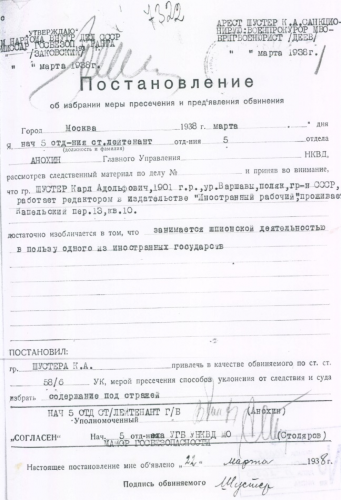 УТВЕРЖДАЮ:
НАРКОМА ВНУТР ДЕЛ СССР
КОМИССАР ГОСБЕЗОП 1 РАНГА
/ЗАКОВСКИЙ/
" марта 1938г.
АРЕСТ ШУСТЕР К.А. САНКЦИО-
НИРУЮ: ВОЕНПРОКУРОР МВО
БРИГВОЕНЮРИСТ /ДЕЕВ/
" марта 1938г.
Постановление
об избрании меры пресечения и пред'явления обвинения
Город Москва 1938 г. марта " дня
Я нач 5 отд-ния ст.лейтенант отд-ния 5 отдела
(должность и фамилия)
АНОХИН Главного Управления НКВД,
рассмотрев следственный материал по делу № и приняв во внимание,
что гр. ШУСТЕР Карл Адольрович, 1901 г.р., ур. Варшавы, поляк, гр-н СССР,
работает редактором в издательстве "Иностранный рабочий", проживает
Капельский пер. 13, кв. 10.
достаточно изобличается в том, что занимается шпионской деятельностью
в пользу одного из иностранных государств
ПОСТАНОВИЛ:
гр. ШУСТЕРА К.А. привлечь в качестве обвиняемого по ст. ст.
58/6 УК, мерой пресечения способов уклонения от следствия и суда
избрать содержание под стражей
НАЧ 5 ОТД СТ/ЛЕЙТЕНАНТ Г/Б (Анохин)
Уполномоченный
"СОГЛАСЕН" Нач. 5 отдела УГБ УНКВД МО (Столяров)
МАЙОР ГОСБЕЗОПАСНОСТИ
Настоящее постановление мне об'явлено "22" марта 1938 г.
Подпись обвиняемого Шустер